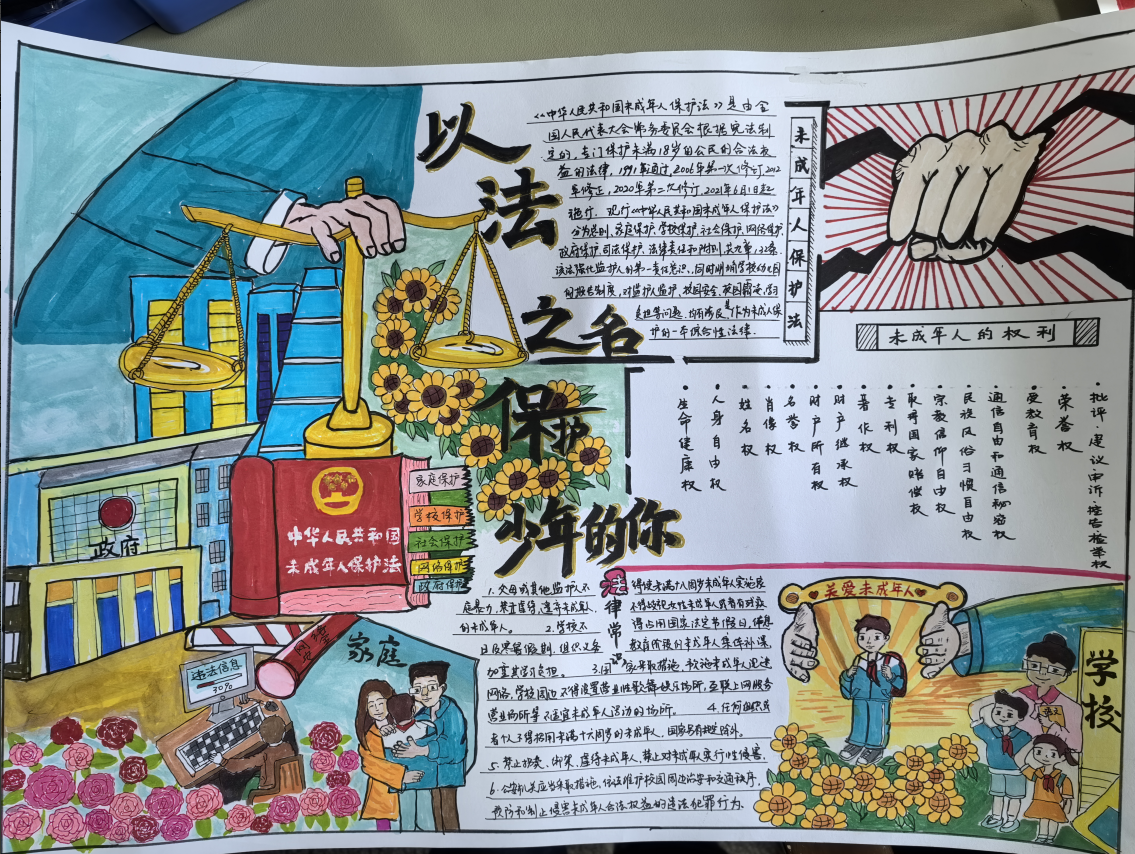 以法
之名
保护
少年的你
《中华人民共和国未成年人保护法》是由全
国人民代表大会常务委员会根据宪法制
定的，专门保护未满18岁的公民的合法权
益的法律，1991年通过，2006年第一次修订，2012
年修正，2020年第二次修订，2021年6月1日起
施行。现行《中华人民共和国未成年人保护法》
分为总则、家庭保护、学校保护、社会保护、网络保护
政府保护、司法保护、法律责任和附则，共九章，132条
该法强化监护人的第一责任意识，同时明确学校幼儿园
的报告制度，对监护人监护、校园安全、
等问题，均有涉及
护的一本综合性法律.
未成年人保护法
未成年人的权利
·生命健康权
·人身自由权
·姓名权
·肖像权
·名誉权
·财产所有权
·财产继承权
·著作权
·专利权
·取得国家赔偿权
·宗教信仰自由权
·民族风俗习惯自由权
·通信自由和通信秘密权
·受教育权
·荣誉权
·批评·建议·申诉·控告·检举权
政府
中华人民共和国
未成年人保护法
家庭保护
学校保护
社会保护
网络保护
政府保护
家庭
违法信息
30%
法律常识
1. 父母或其他监护人不
的未成年人。 2.学校不
日及寒暑假期，组织义务
加重其学习负担。
网络，学校周边不得设置营业性歌舞娱乐场所，互联上网服务
营业场所等不适宜未成年人活动的场所。 4.任何组织或
者个人不得招用未满十六周岁的未成年人，国家另有规定除外。
5. 禁止拐卖、绑架、虐待未成年人，禁止对未成年人实行性侵害。
6. 公安机关应当采取措施，依法维护校园周边治安和交通秩序，
预防和制止侵害未成年人合法权益的违法犯罪行为.
得使未满十六周岁未成年人
关爱未成年人
学校